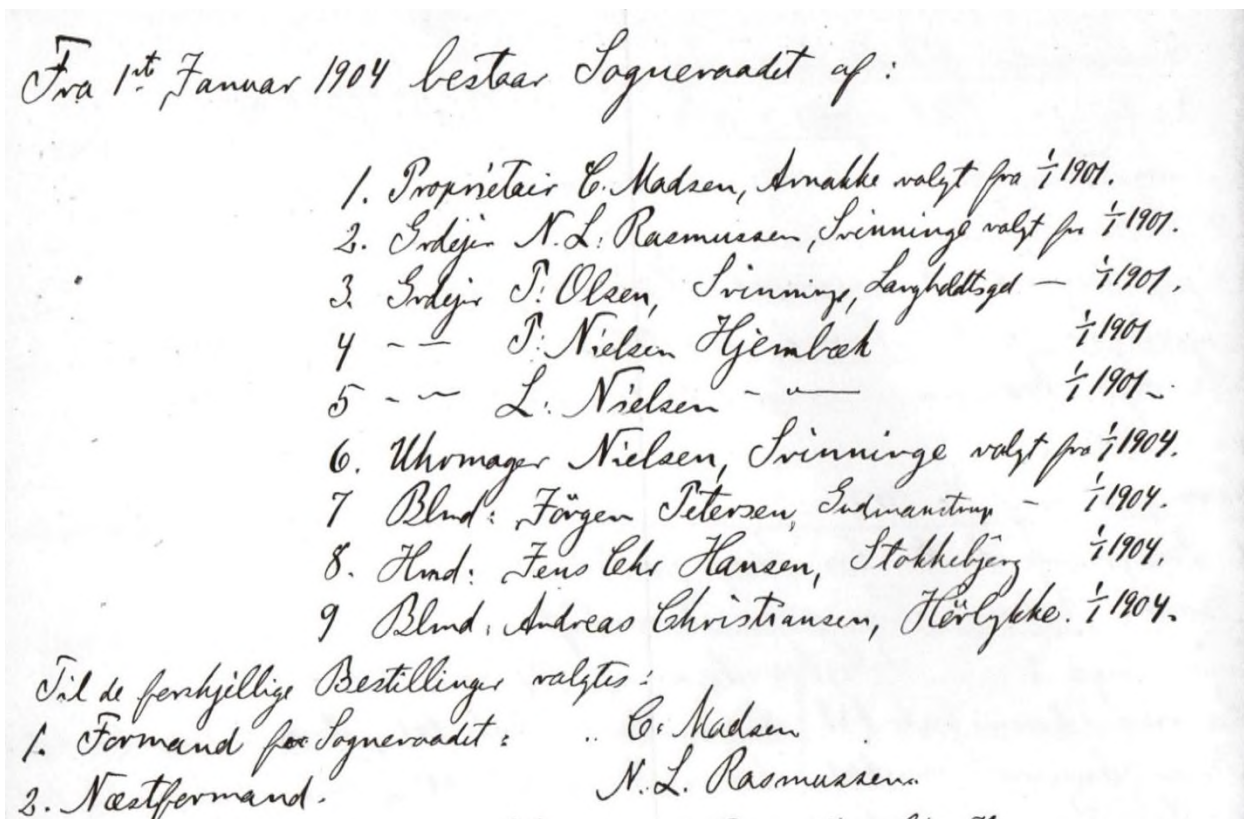 Fra 1ste Januar 1904 bestaar Sogneraadet af:
1. Proprietair C. Madsen, Arnakke valgt fra 1/1 1901.
2. Grdejer N. L. Rasmussen, Svinninge valgt fra 1/1 1901.
3. Grdejer P. Olsen, Svinninge, Langholdtsgd — 1/1 1901.
4 - — P. Nielsen Hjembæk 1/1 1901
5 - — L. Nielsen - " — 1/1 1901
6. Uhrmager Nielsen, Svinninge valgt fra 1/1 1904.
7 Blmd: Jörgen Petersen, Gudmanstrup - 1/1 1904.
8. Hmd: Jens Chr Hansen, Stokkebjerg 1/1 1904.
9 Blmd. Andreas Christiansen, Hörlykke. 1/1 1904.
Til de forskjellige Bestillinger valgtes:
1. Formand for Sogneraadet: C. Madsen
2. Næstformand. N. L. Rasmussen.